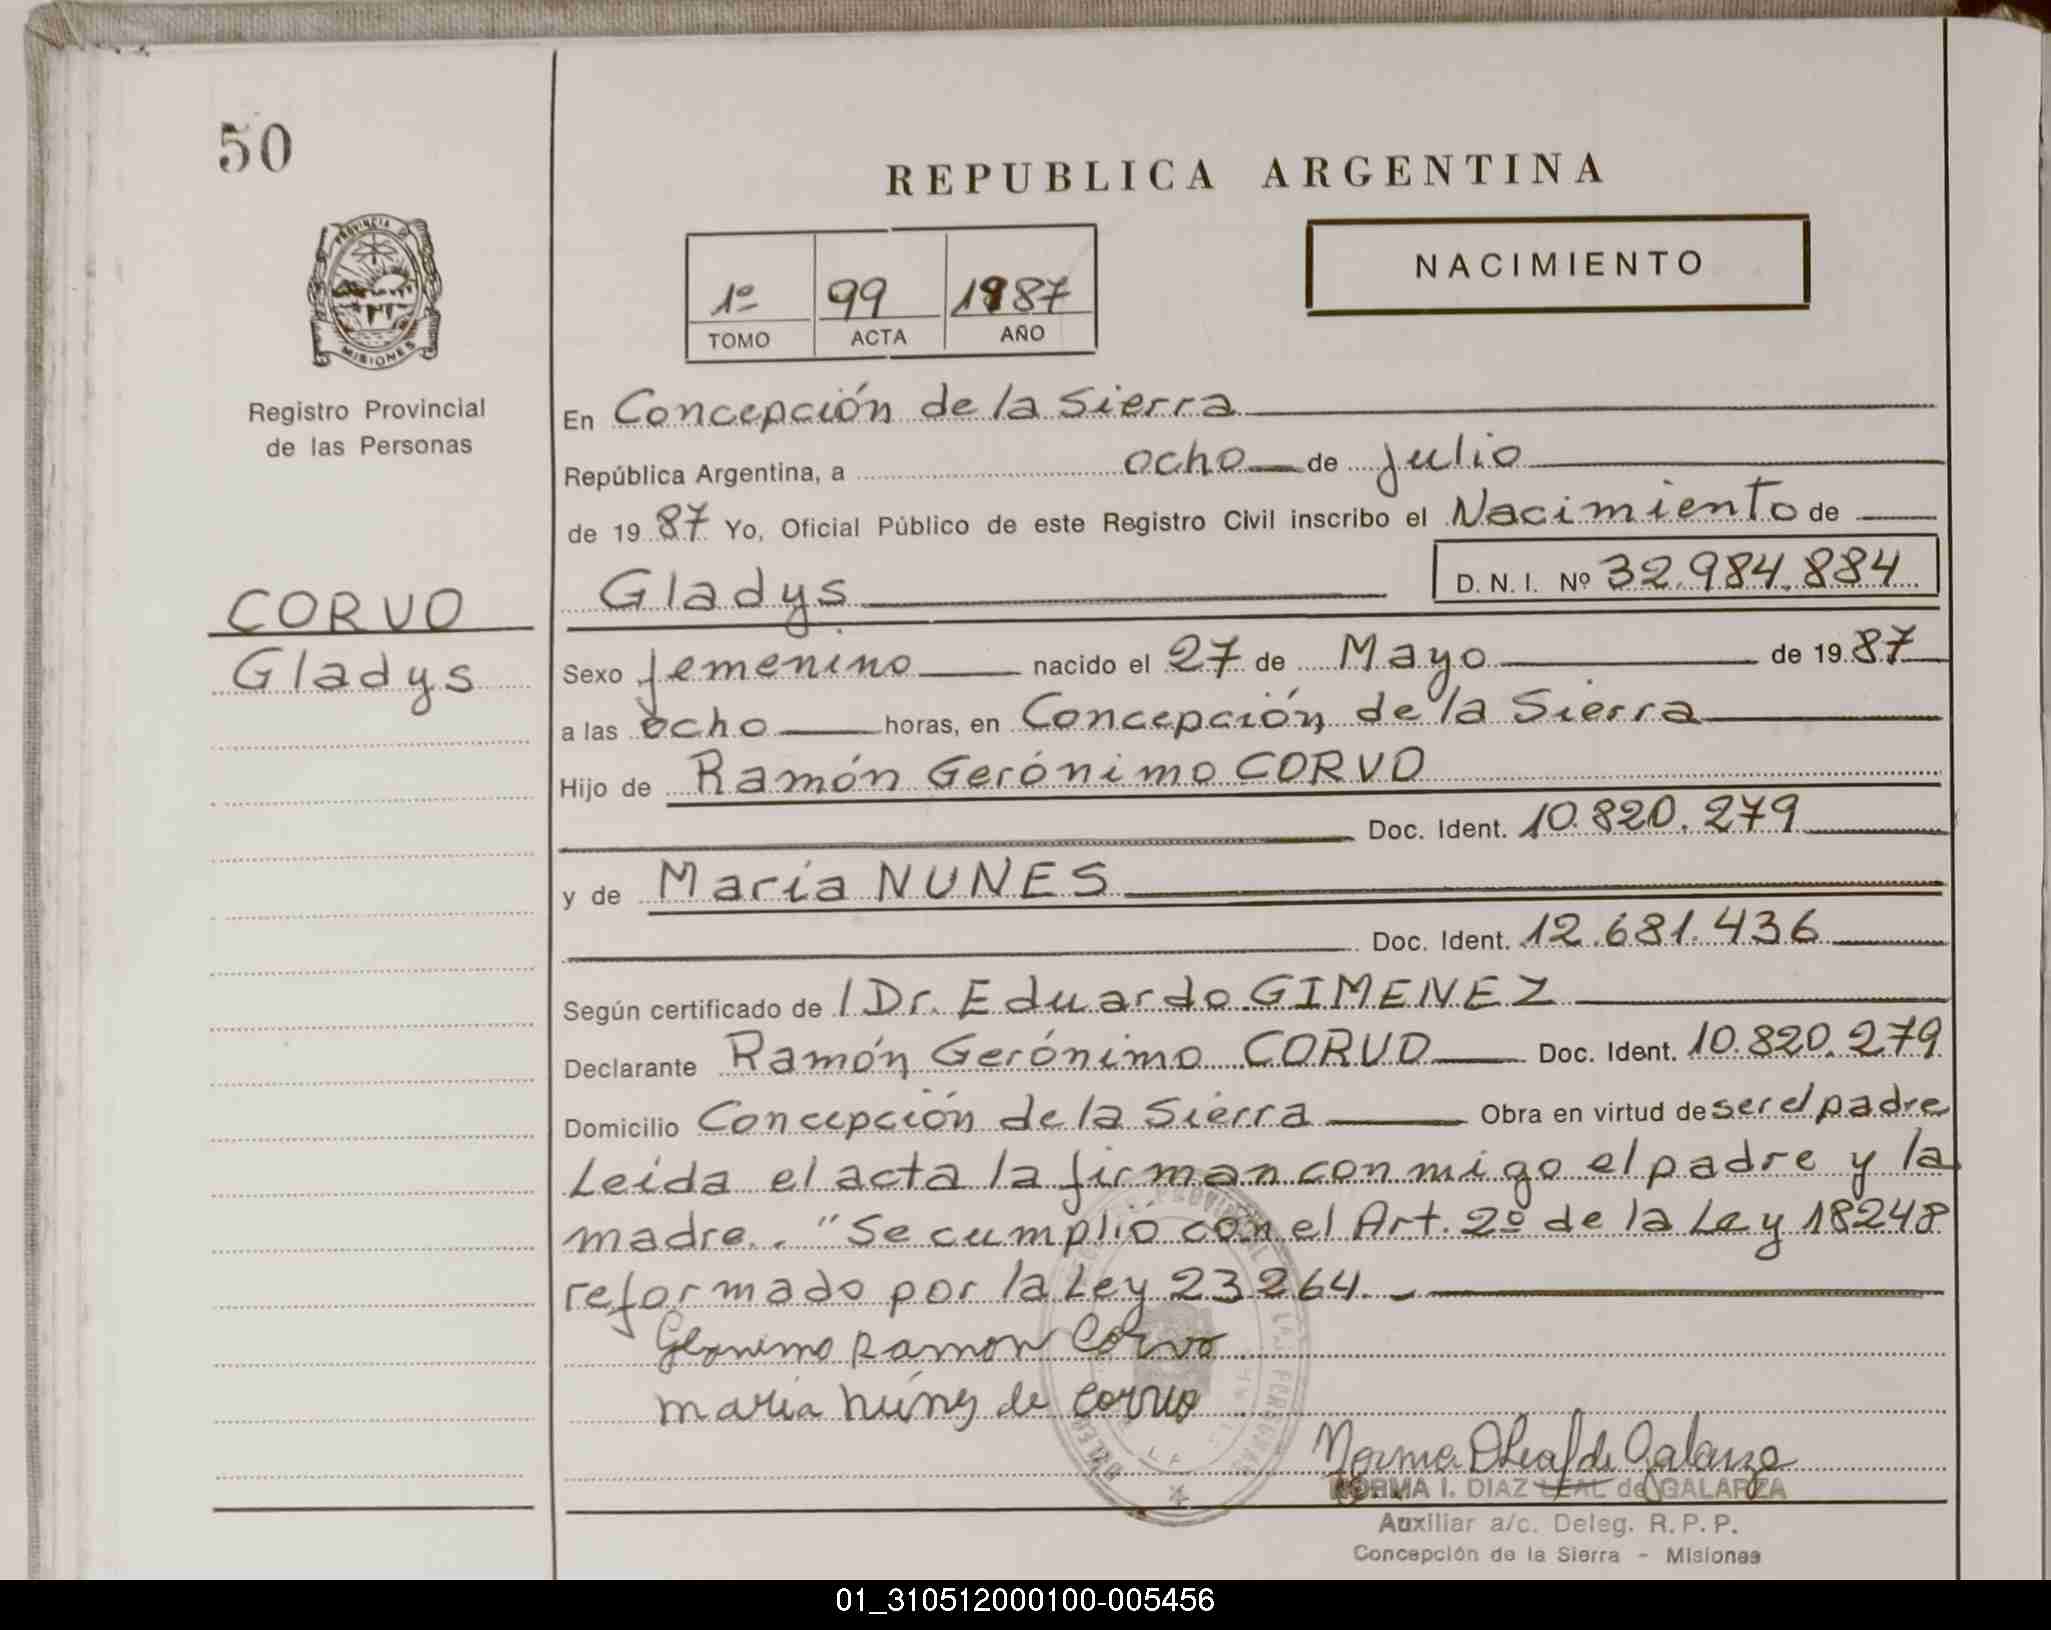 50
REPUBLICA ARGENTINA
NACIMIENTO
1º 99 1987
TOMO ACTA AÑO
PROVINCIA D
MISIONES
Registro Provincial
de las Personas
CORVO
Gladys
En Concepción de la Sierra
República Argentina, a ocho de julio
de 19 87 Yo, Oficial Público de este Registro Civil inscribo el Nacimiento de
Gladys D. N. I. Nº 32.984.884
Sexo femenino nacido el 27 de Mayo de 19 87
a las ocho horas, en Concepción de la Sierra
Hijo de Ramón Gerónimo CORVO
Doc. Ident. 10.820.279
y de María NUNES
Doc. Ident. 12.681.436
Según certificado de / Dr. Eduardo GIMENEZ
Declarante Ramón Gerónimo CORVO Doc. Ident. 10.820.279
Domicilio Concepción de la Sierra Obra en virtud de ser el padre
Leída el acta la firman conmigo el padre y la
madre. "Se cumplió con el Art. 2º de la Ley 18248
reformado por la Ley 23264.
Geronimo Ramon Corvo
maria núnes de corvo
Norma D Leal de Galarza
NORMA I. DIAZ LEAL de GALARZA
Auxiliar a/c. Deleg. R. P. P.
Concepción de la Sierra - Misiones
01_310512000100-005456